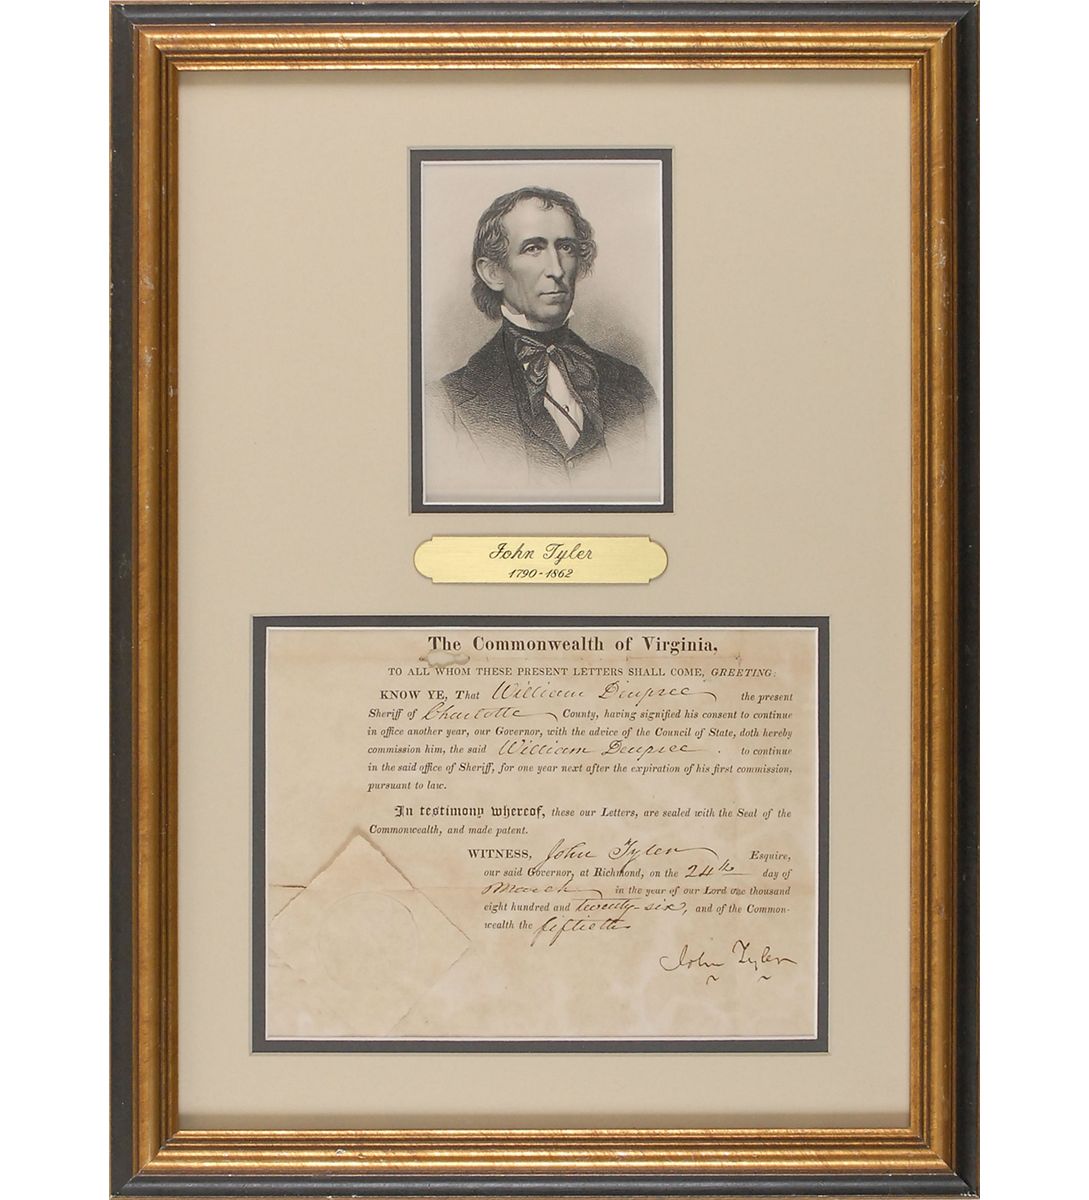 John Tyler
1790-1862
The Commonwealth of Virginia,
TO ALL WHOM THESE PRESENT LETTERS SHALL COME, GREETING:
KNOW YE, That William Dupree the present
Sheriff of Charlotte County, having signified his consent to continue
in office another year, our Governor, with the advice of the Council of State, doth hereby
commission him, the said William Dupree . to continue
in the said office of Sheriff, for one year next after the expiration of his first commission,
pursuant to law.
In testimony whereof, these our Letters, are sealed with the Seal of the
Commonwealth, and made patent.
WITNESS, John Tyler Esquire,
our said Governor, at Richmond, on the 24th day of
March in the year of our Lord one thousand
eight hundred and twenty-six, and of the Common-
wealth the fiftieth
John Tyler